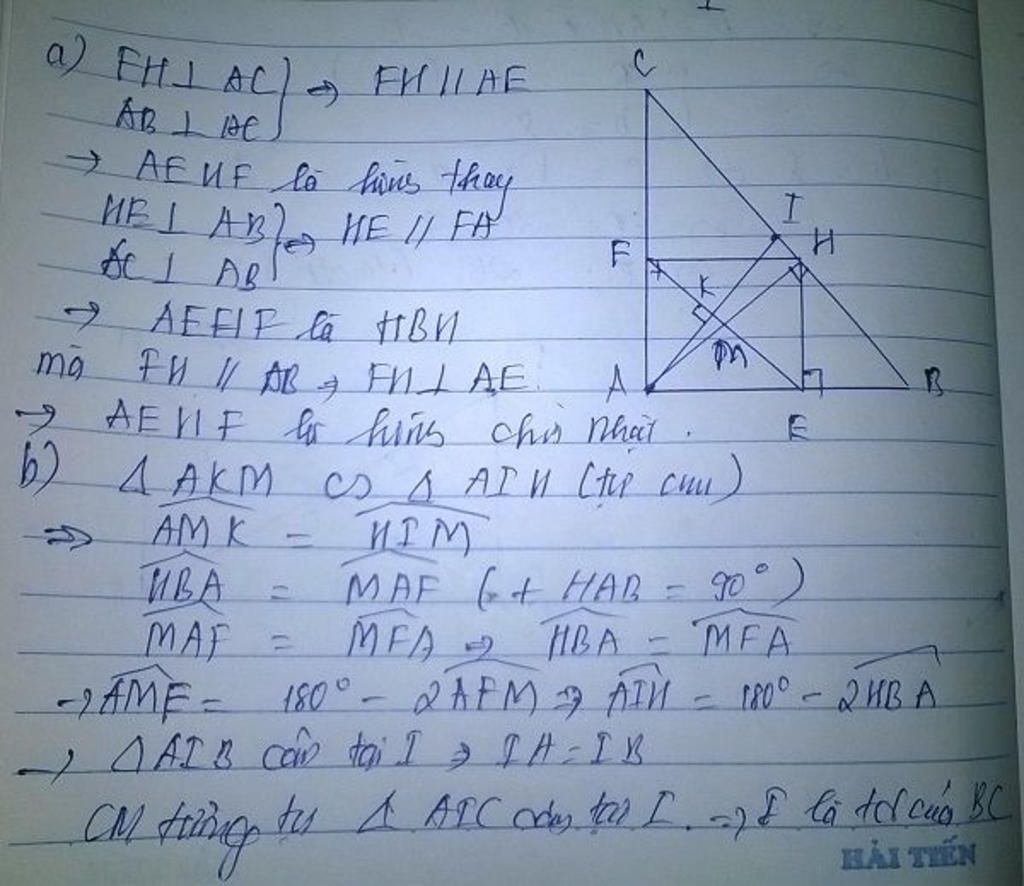 a) FH ⊥ AC
AB ⊥ AC } → FH // AE
→ AEHF là hình thang
HE ⊥ AB
AC ⊥ AB } → HE // FA
→ AEHF là HBH
mà FH // AB → FH ⊥ AE.
→ AEHF là hình chữ nhật.
b) Δ AKM ∽ Δ AIH (tự cm)
=> AMK = HIM
HBA = MAF (+ HAB = 90°)
MAF = MFA => HBA = MFA
→ AMF = 180° - 2AFM => AIH = 180° - 2HBA
→ ΔAIB cân tại I → IA = IB
CM tương tự Δ AIC cân tại I. => I là tđ của BC
C
I
F
H
K
M
A
E
B
HẢI TIẾN